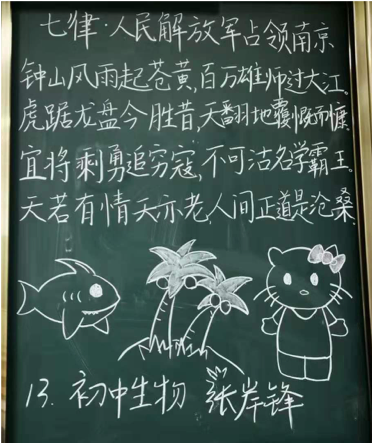 七律·人民解放军占领南京
钟山风雨起苍黄,百万雄师过大江。
虎踞龙盘今胜昔,天翻地覆慨而慷
宜将剩勇追穷寇,不可沽名学霸王。
天若有情天亦老,人间正道是沧桑.
13. 初中生物 张岸锋